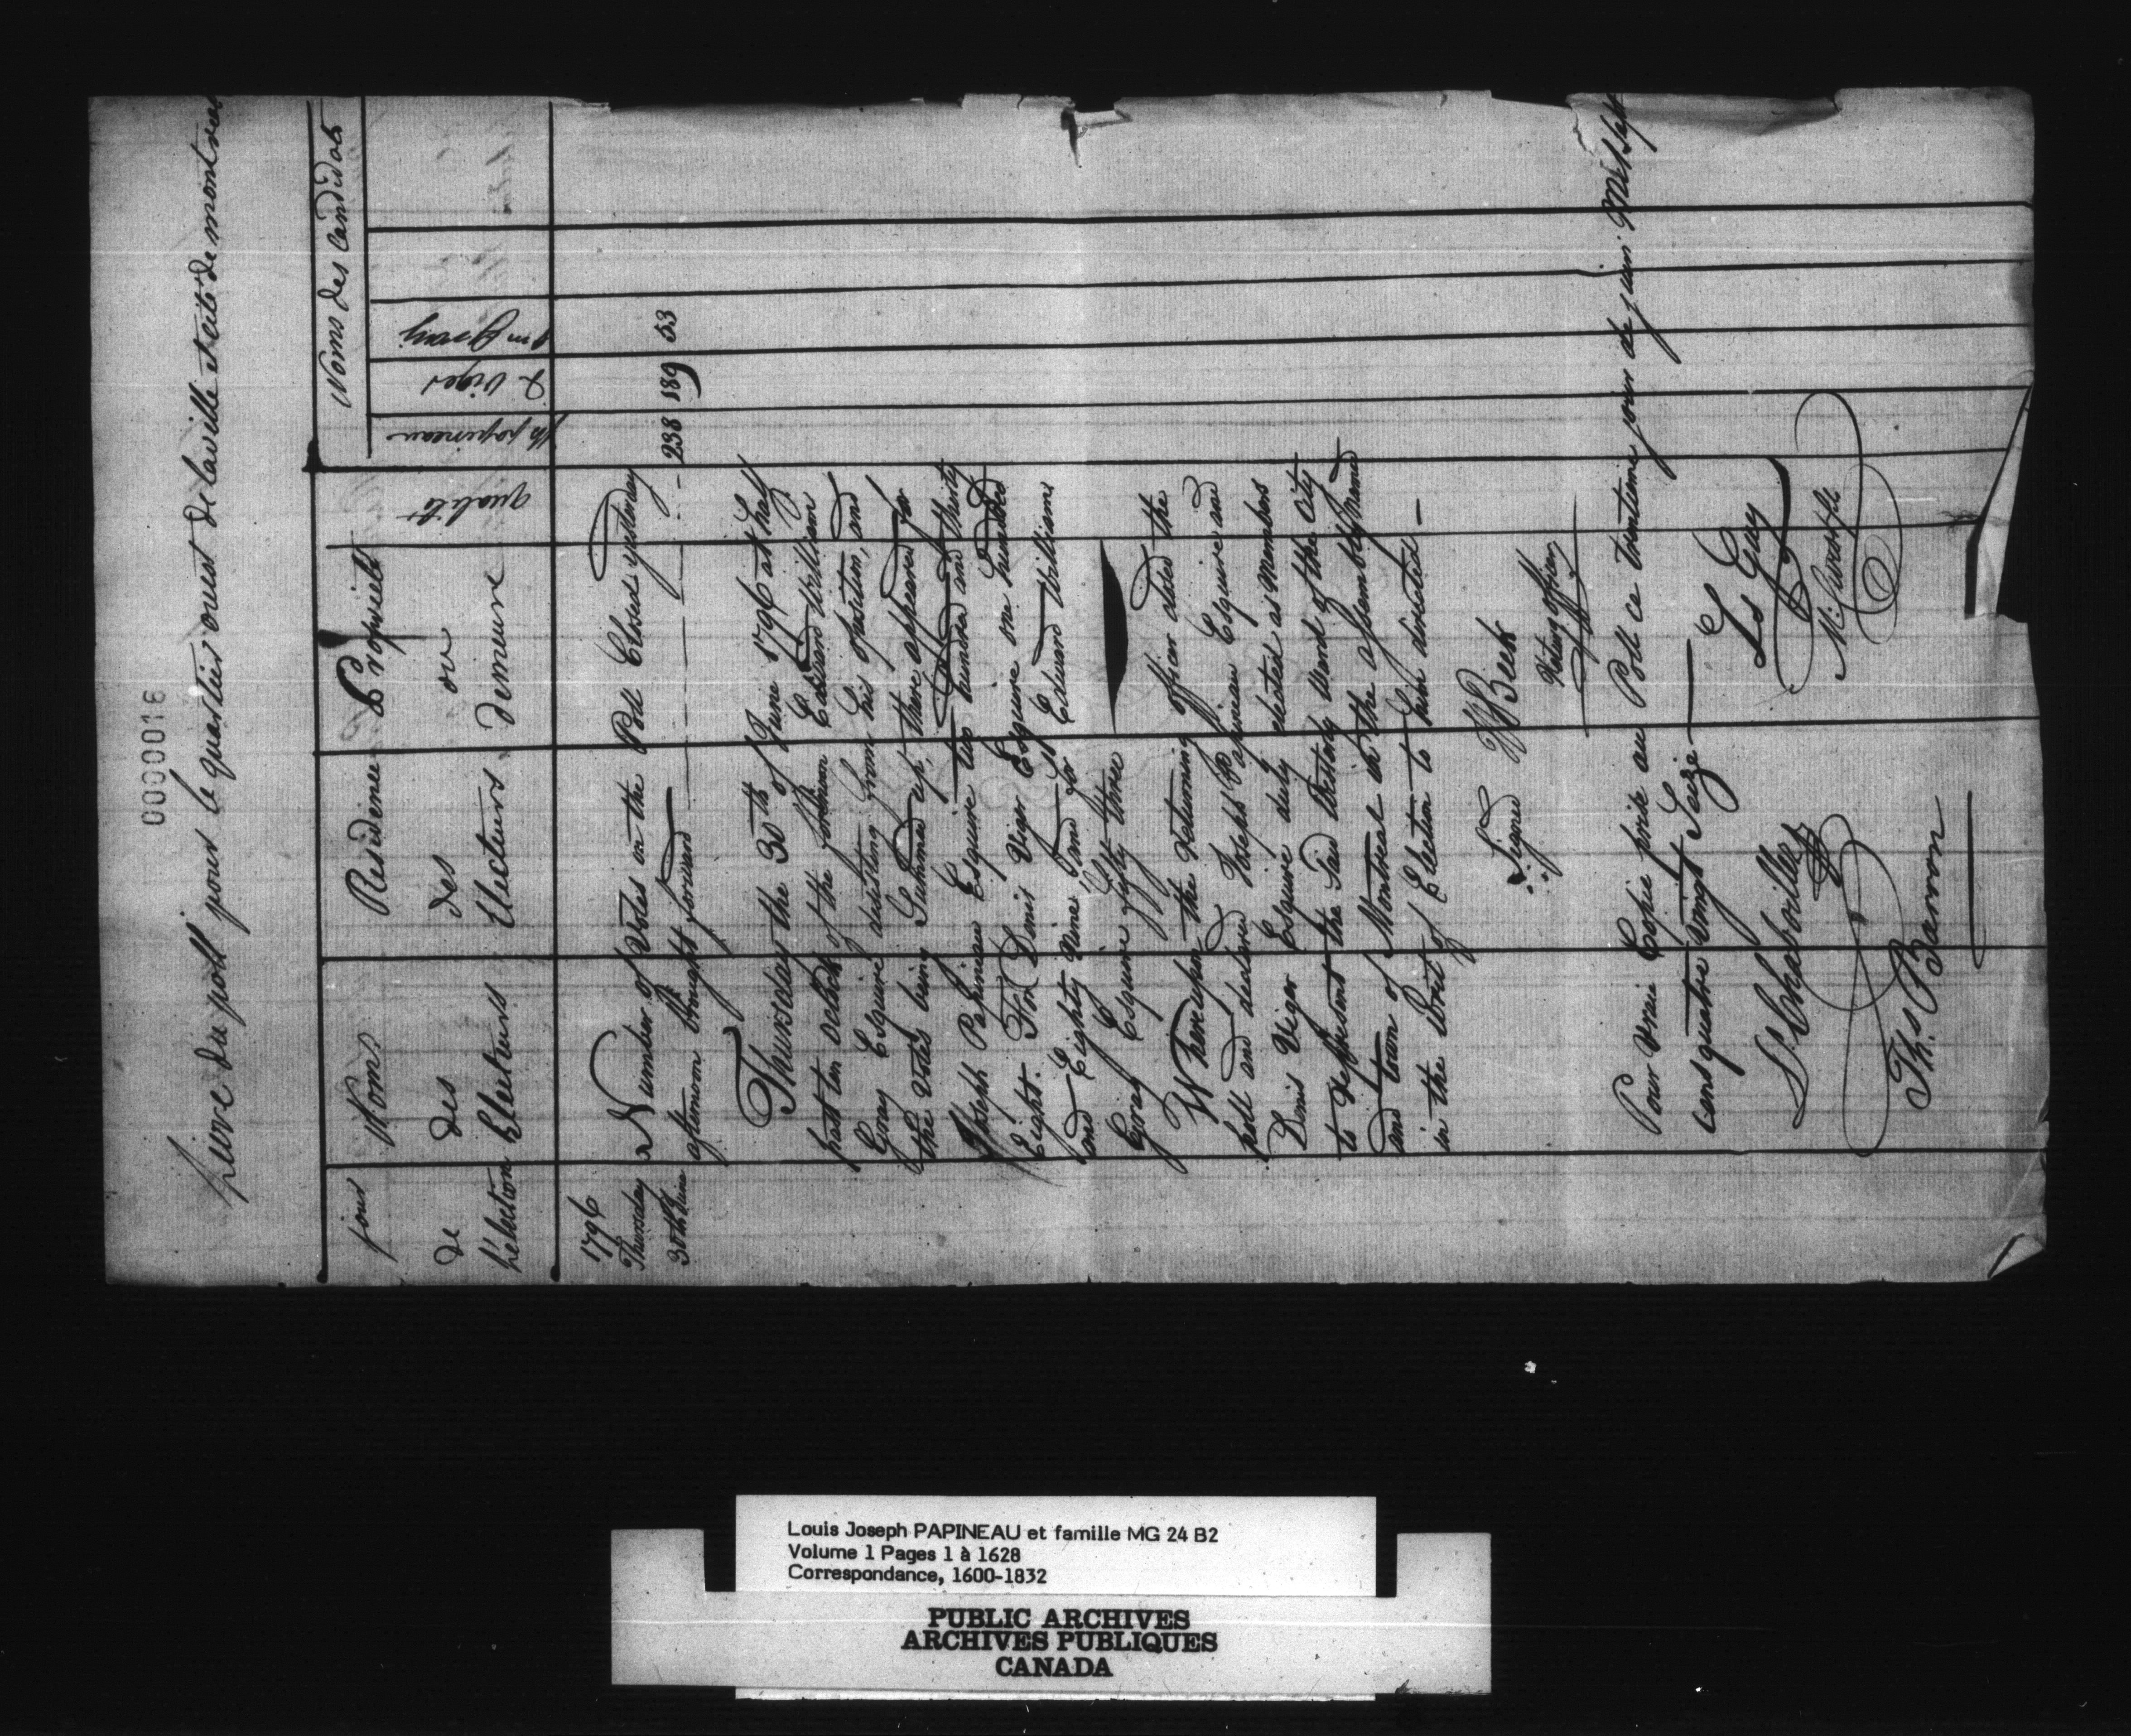 0000016
Livre du poll pour le quartier ouest de la ville et cité de montreal
jour
de
l'election
Noms
des
Electeurs
Residence
des
Electeurs
Propriété
ou
demeure
qualité
Noms des Candidats
Jh papineau
D. Viger
Em Gray
1796
Thursday
30th June
Number of Votes on the Poll Closed yesterday
afternoon brought forward 238 189 53
Thursday the 30th of June 1796 at half
past ten oClock of the forenoon Edward William
Gray Esquire desisting from his position, and
the Votes being Summed up, there appeared for
Joseph Papineau Esquire two hundred and thirty
Eight. For Denis Viger Esquire one hundred
and Eighty Nine. And for Edward William
Gray Esquire fifty three
Whereupon the Returning officer added the
poll and declared Joseph Papineau Esquire and
Denis Viger Esquire duly elected as Members
to represent the Said Westerly Ward of the City
and town of Montreal in the assembly Named
in the Writ of Election to him directed —
Signed W Beek
Retug officer
Pour vraie Copie prise au Poll ce trentieme jour de juin Mil Sept
cens quatre vingt Seize —
Ls Guy
Th: Barron
Louis Joseph PAPINEAU et famille MG 24 B2
Volume 1 Pages 1 à 1628
Correspondance, 1600-1832
PUBLIC ARCHIVES
ARCHIVES PUBLIQUES
CANADA